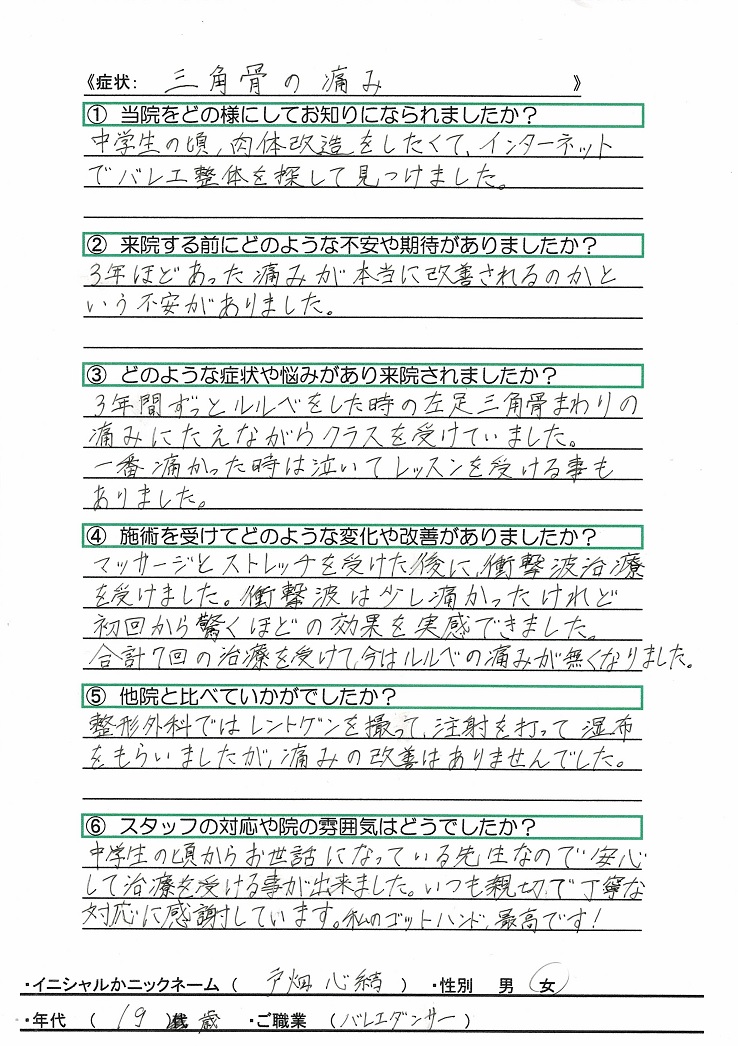 《症状: 三角骨の痛み 》
① 当院をどの様にしてお知りになられましたか？
中学生の頃,肉体改造をしたくて、インターネット
でバレエ整体を探して見つけました。
② 来院する前にどのような不安や期待がありましたか？
3年ほどあった痛みが本当に改善されるのかと
いう不安がありました。
③ どのような症状や悩みがあり来院されましたか？
3年間ずっとルルベをした時の左足三角骨まわりの
痛みにたえながらクラスを受けていました。
一番痛かった時は泣いてレッスンを受ける事も
ありました。
④ 施術を受けてどのような変化や改善がありましたか？
マッサージとストレッチを受けた後に,衝撃波治療
を受けました。衝撃波は少し痛かったけれど
初回から驚くほどの効果を実感できました。
合計7回の治療を受けて,今はルルベの痛みが無くなりました。
⑤ 他院と比べていかがでしたか？
整形外科ではレントゲンを撮って、注射を打って湿布
をもらいましたが,痛みの改善はありませんでした。
⑥ スタッフの対応や院の雰囲気はどうでしたか？
中学生の頃からお世話になっている先生なので安心
して治療を受ける事が出来ました。いつも親切で丁寧な
対応に感謝しています。私のゴットハンド,最高です!
・イニシャルかニックネーム （ 戸畑心結 ） ・性別 男 女
・年代 （ 19 ）歳 ・ご職業 （バレエダンサー）